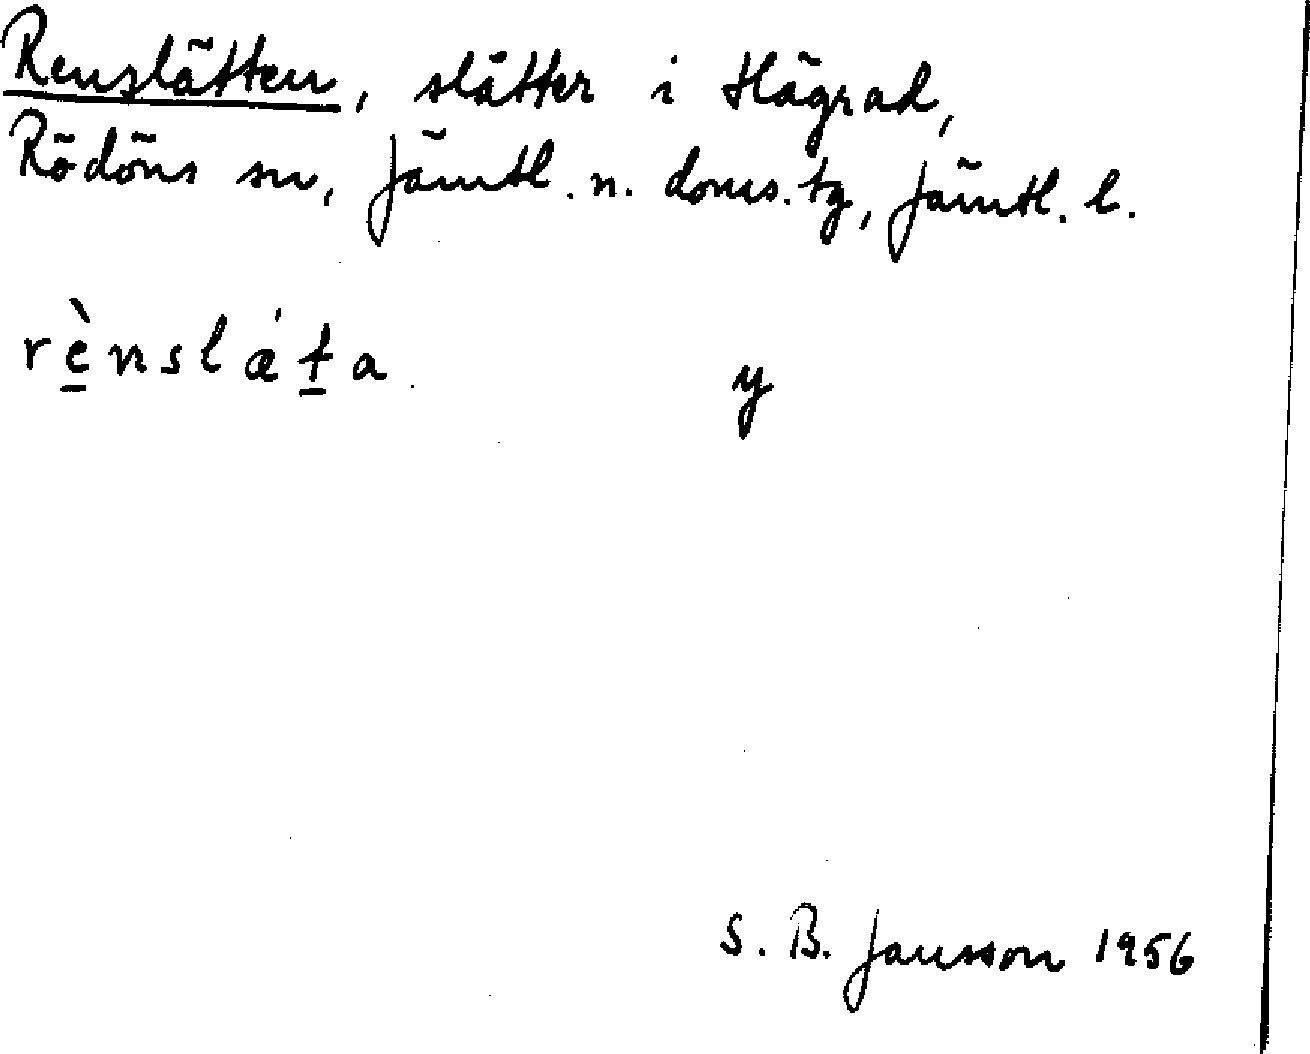 Renslätten, slåtter i Högrad,
Rödöns sn, Jämtl. n. doms. tg, Jämtl. l.
rè̱nslǽṯa y
S. B. Jansson 1956